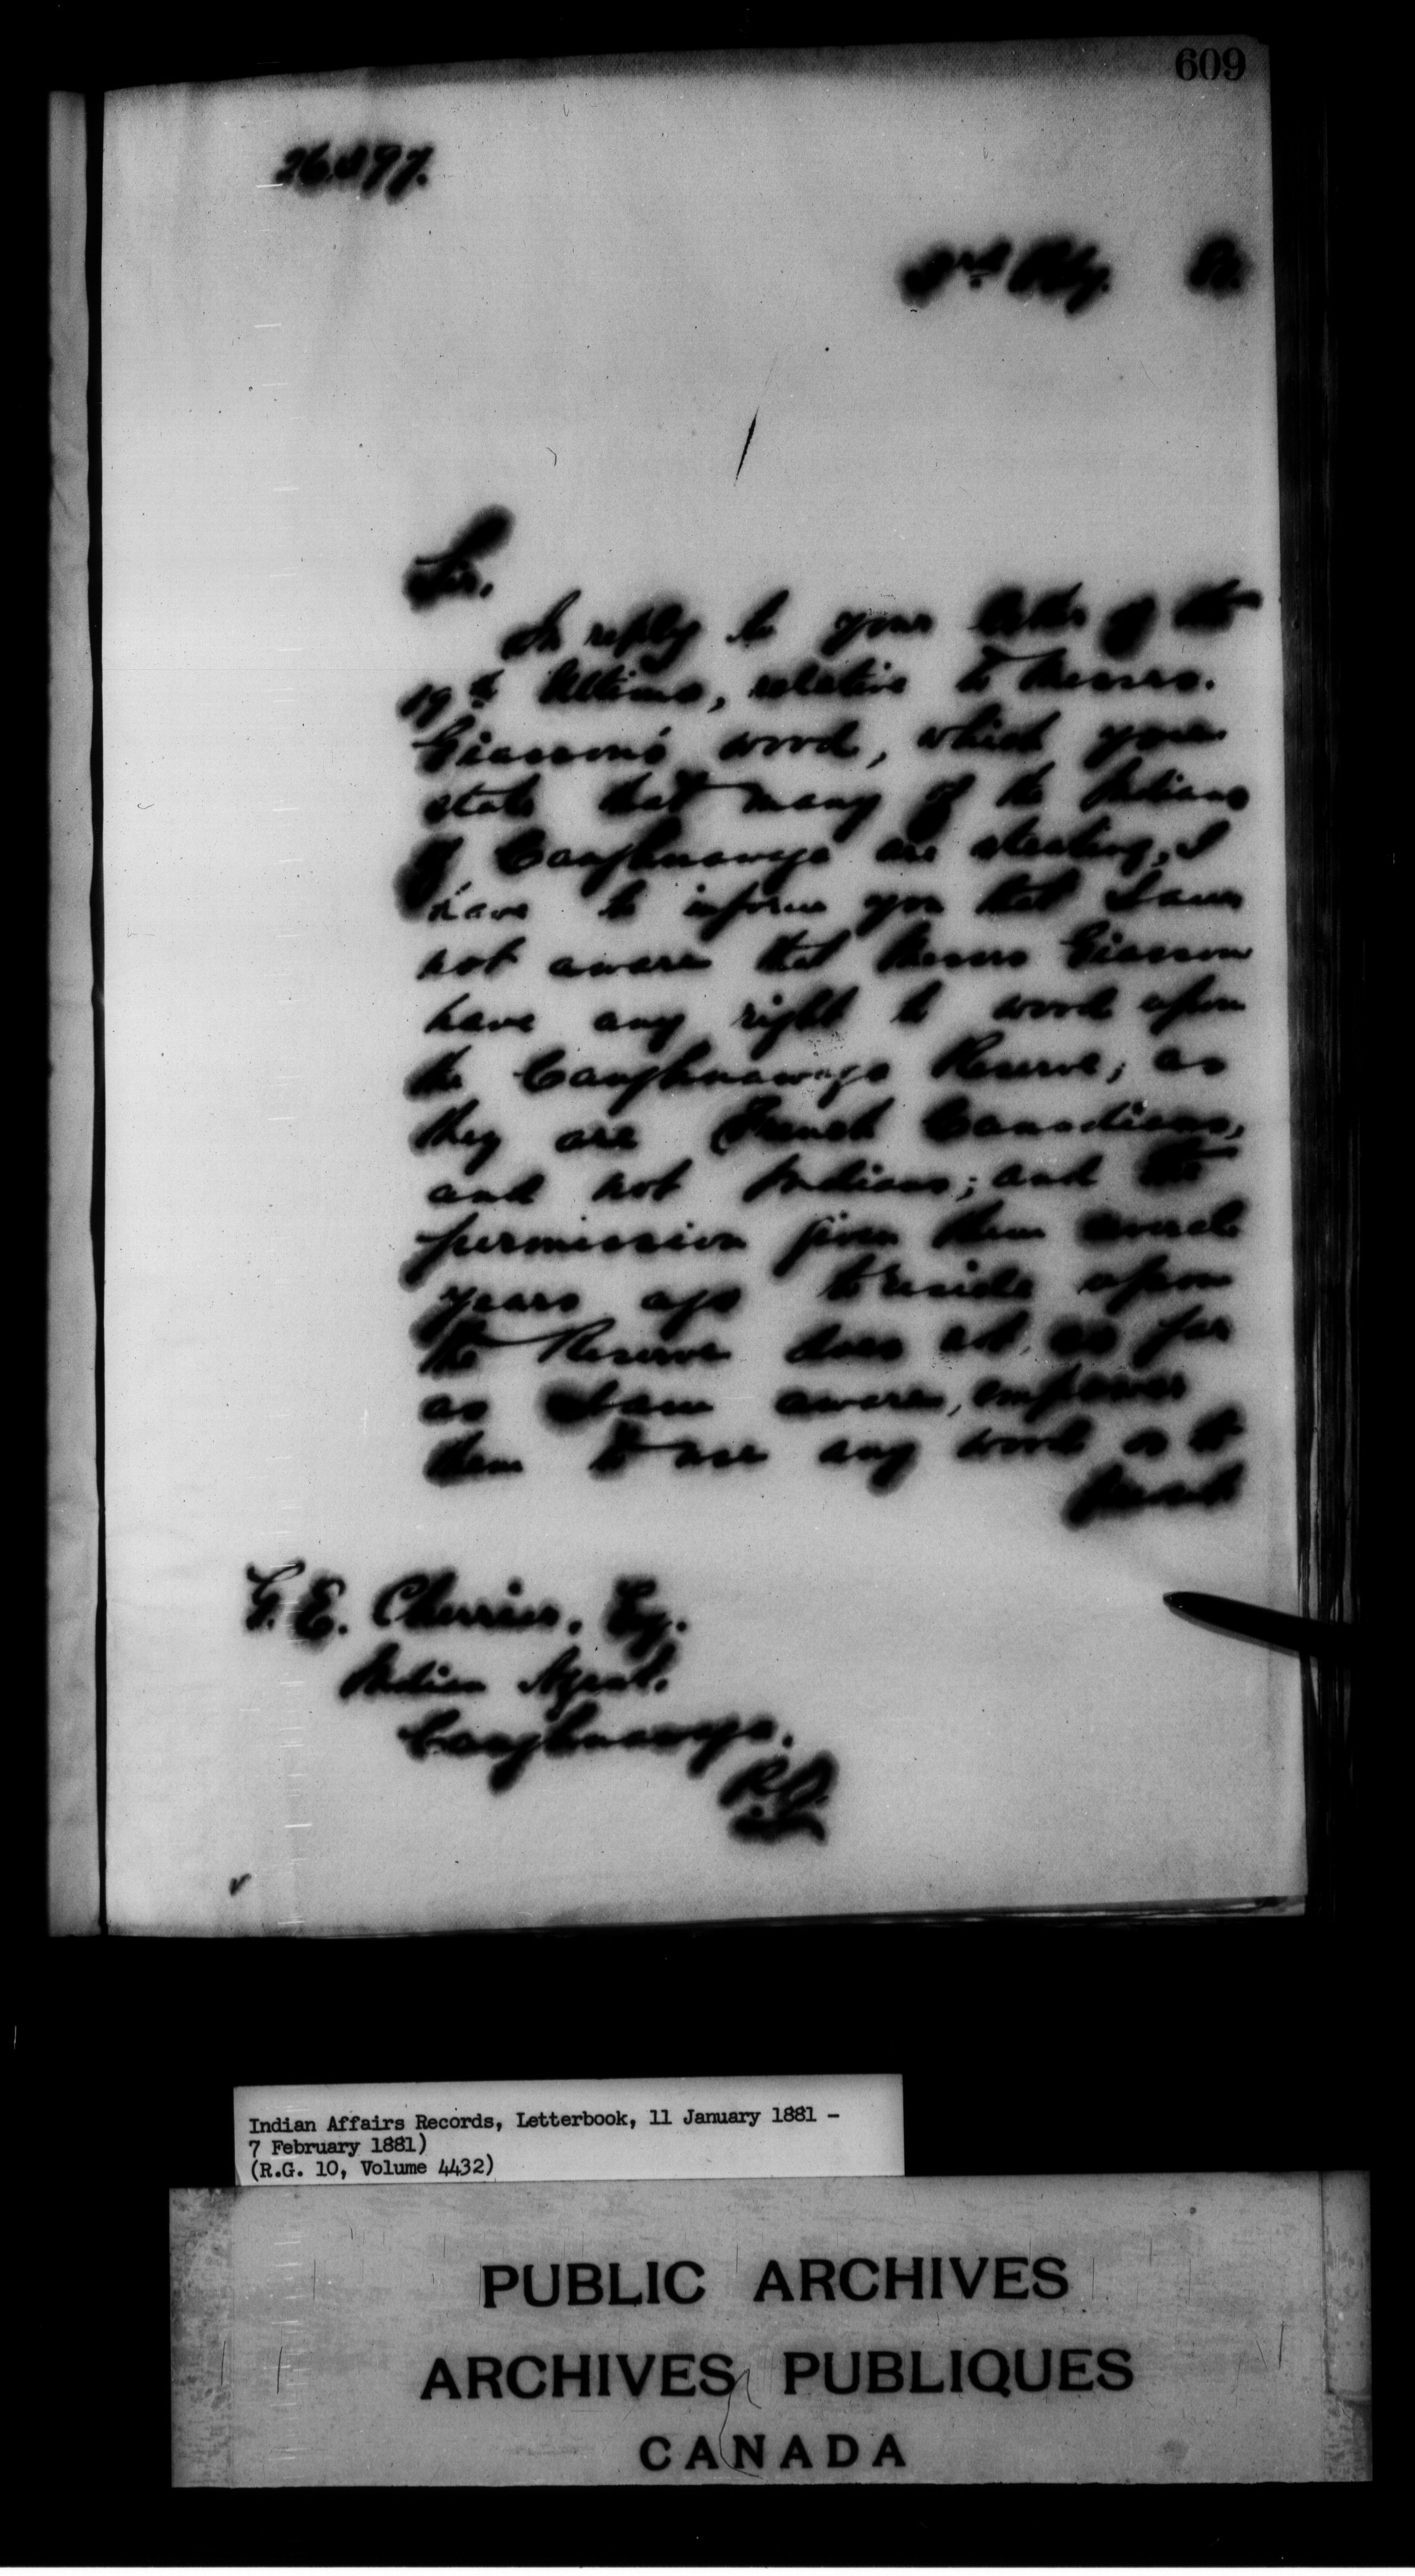 609
26.897.
3rd Feby. 81.
Sir,
In reply to your letter of the
19th Ultimo, relative to Messrs.
Giasson's wood, which you
state that many of the Indians
of Caughnawaga are stealing, I
have to inform you that I am
not aware that Messrs Giasson
have any right to wood upon
the Caughnawaga Reserve; as
they are French Canadians,
and not Indians; and the
permission given them several
years ago to reside upon
the Reserve does not, as far
as I am aware, empower
them to use any wood as to
G. E. Cherrier, Esq.
Indian Agent.
Caughnawaga.
P.Q.
Indian Affairs Records, Letterbook, 11 January 1881 -
7 February 1881)
(R.G. 10, Volume 4432)
PUBLIC ARCHIVES
ARCHIVES PUBLIQUES
CANADA